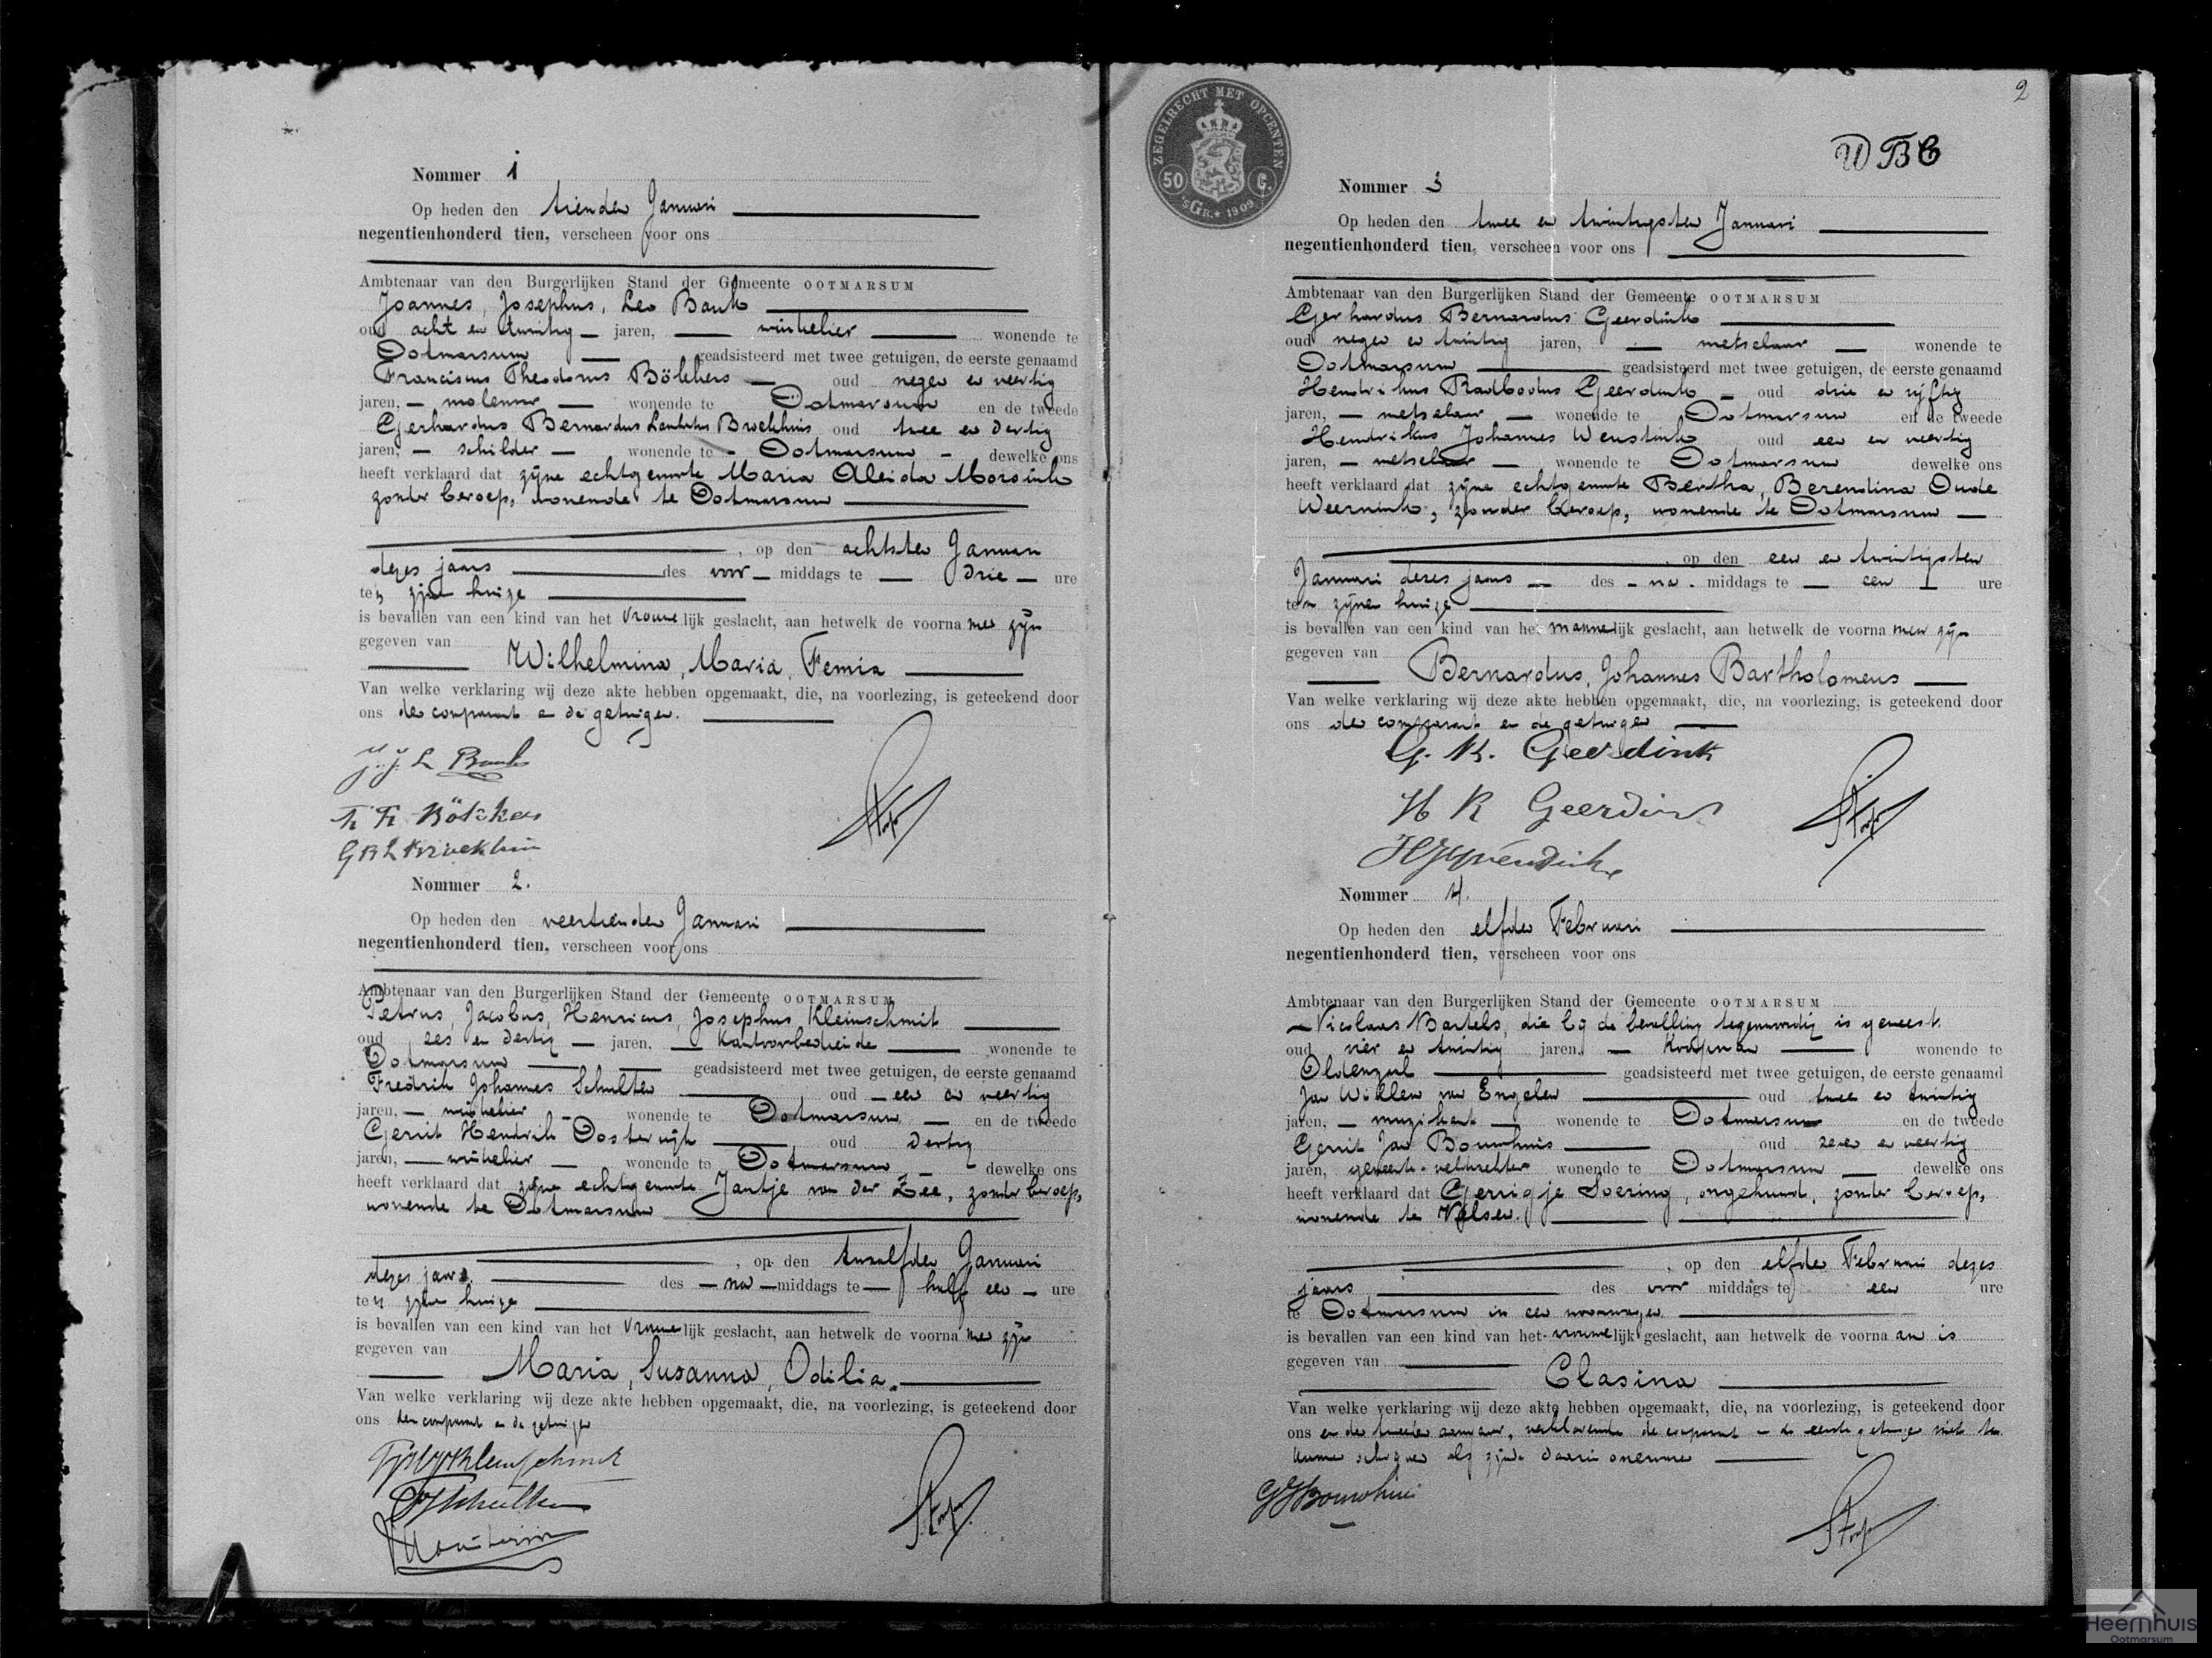 Nommer 1
Op heden den tienden Januari
negentienhonderd tien, verscheen voor ons
Ambtenaar van den Burgerlijken Stand der Gemeente OOTMARSUM
Joannes, Josephus, Leo Bank
oud acht en twintig jaren, winkelier wonende te
Ootmarsum geadsisteerd met twee getuigen, de eerste genaamd
Franciscus Theodorus Bölckers oud negen en veertig
jaren, molenaar wonende te Ootmarsum en de tweede
Gerhardus Bernardus Lambertus Broekhuis oud twee en dertig
jaren, schilder wonende te Ootmarsum dewelke ons
heeft verklaard dat zijne echtgenoote Maria Aleida Morsink
zonder beroep, wonende te Ootmarsum
, op den achtsten Januari
dezes jaars des voor middags te drie ure
ten zijnen huize
is bevallen van een kind van het vrouwelijk geslacht, aan hetwelk de voornamen zijn
gegeven van
Wilhelmina, Maria, Femia
Van welke verklaring wij deze akte hebben opgemaakt, die, na voorlezing, is geteekend door
ons den comparant en de getuigen.
J. J. L Bank
G B L Broekhuis
Nommer 2.
Op heden den veertienden Januari
negentienhonderd tien, verscheen voor ons
Ambtenaar van den Burgerlijken Stand der Gemeente OOTMARSUM
Petrus, Jacobus, Henricus, Josephus Kleinschmit
oud zes en dertig jaren, kantoorbediende wonende te
Ootmarsum geadsisteerd met twee getuigen, de eerste genaamd
Fredrik Johannes Schulten oud een en veertig
jaren, winkelier wonende te Ootmarsum en de tweede
Gerrit Hendrik Oosterwijk oud dertig
jaren, winkelier wonende te Ootmarsum dewelke ons
heeft verklaard dat zijne echtgenoote Jantje van der Zee, zonder beroep,
wonende te Ootmarsum
, op den twaalfden Januari
dezes jaars. des na middags te half een ure
ten zijnen huize
is bevallen van een kind van het vrouwelijk geslacht, aan hetwelk de voornamen zijn
gegeven van
Maria, Susanna, Odilia.
Van welke verklaring wij deze akte hebben opgemaakt, die, na voorlezing, is geteekend door
ons den comparant en de getuigen
ZEGELRECHT MET OPCENTEN
50 C.
'S GR. 1909
2
Nommer 3
Op heden den twee en twintigsten Januari
negentienhonderd tien, verscheen voor ons
Ambtenaar van den Burgerlijken Stand der Gemeente OOTMARSUM
Gerhardus Bernardus Geerdink
oud negen en twintig jaren, metselaar wonende te
Ootmarsum geadsisteerd met twee getuigen, de eerste genaamd
Hendrikus Radbodus Geerdink oud drie en vijftig
jaren, metselaar wonende te Ootmarsum en de tweede
Hendrikus Johannes Wensink oud een en veertig
jaren, metselaar wonende te Ootmarsum dewelke ons
heeft verklaard dat zijne echtgenoote Bertha, Berendina Oude
Weernink, zonder beroep, wonende te Ootmarsum
, op den een en twintigsten
Januari dezes jaars des na middags te een ure
ten zijnen huize
is bevallen van een kind van het mannelijk geslacht, aan hetwelk de voornamen zijn
gegeven van
Bernardus, Johannes Bartholomeus
Van welke verklaring wij deze akte hebben opgemaakt, die, na voorlezing, is geteekend door
ons den comparant en de getuigen
G. B. Geerdink
H R Geerdink
Nommer 4.
Op heden den elfden Februari
negentienhonderd tien, verscheen voor ons
Ambtenaar van den Burgerlijken Stand der Gemeente OOTMARSUM
Nicolaas Bartels, die bij de bevalling tegenwoordig is geweest.
oud vier en twintig jaren, koopman wonende te
Oldenzaal geadsisteerd met twee getuigen, de eerste genaamd
Jan Willem van Engelen oud twee en twintig
jaren, muzikant wonende te Ootmarsum en de tweede
Gerrit Jan Bouwhuis oud zeven en veertig
jaren, gemeente-veldwachter wonende te Ootmarsum dewelke ons
heeft verklaard dat Gerrigje Soering, ongehuwd, zonder beroep,
wonende te Velsen.
, op den elfden Februari dezes
jaars des voor middags te een ure
te Ootmarsum in een woonwagen
is bevallen van een kind van het vrouwelijk geslacht, aan hetwelk de voornaam is
gegeven van
Clasina
Van welke verklaring wij deze akte hebben opgemaakt, die, na voorlezing, is geteekend door
ons en den tweeden getuige, verklarende de comparant en de eerste getuige niet te
kunnen schrijven als zijnde daarin onervaren
G J Bouwhuis
Heemhuis
Ootmarsum